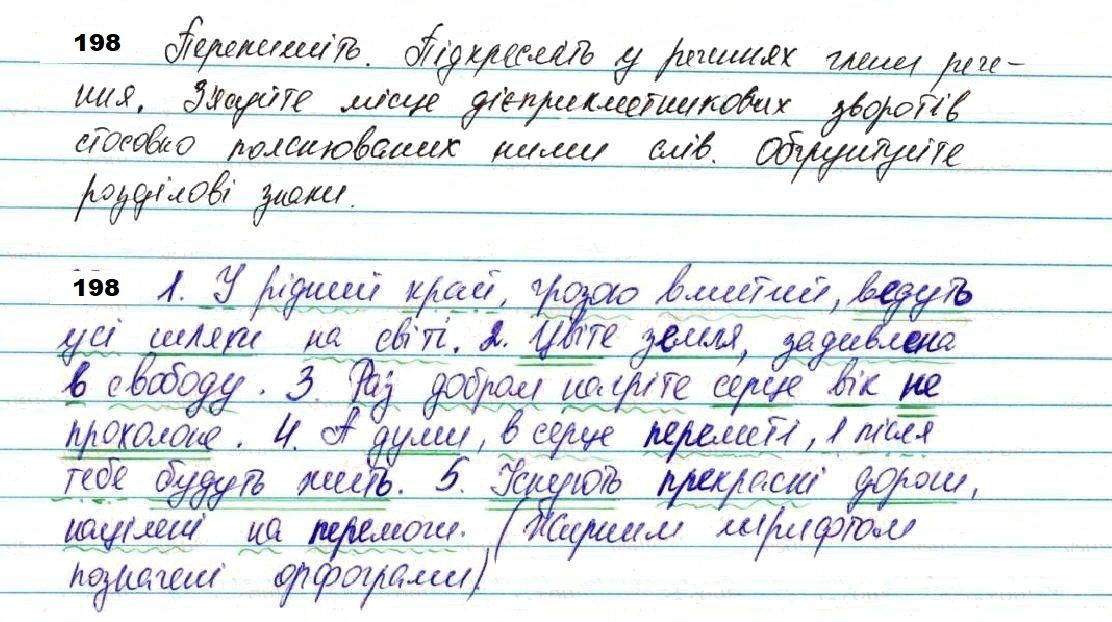 198 Перепишіть. Підкресліть у реченнях члени рече-
ння. Знайдіте місце дієприкметникових зворотів
стосовно пояснюваних ними слів. Обґрунтуйте
розділові знаки.
198 1. У рідний край, грозою вмитий, ведуть
усі шляхи на світі. 2. Цвіте земля, задивлена
в свободу. 3. Раз добром нагріте серце вік не
прохолоне. 4. А думи, в серце переміті, і після
тебе будуть жить. 5. Існують прекрасні дороги,
націлені на перемоги. (Жирним шрифтом
позначені орфограми)